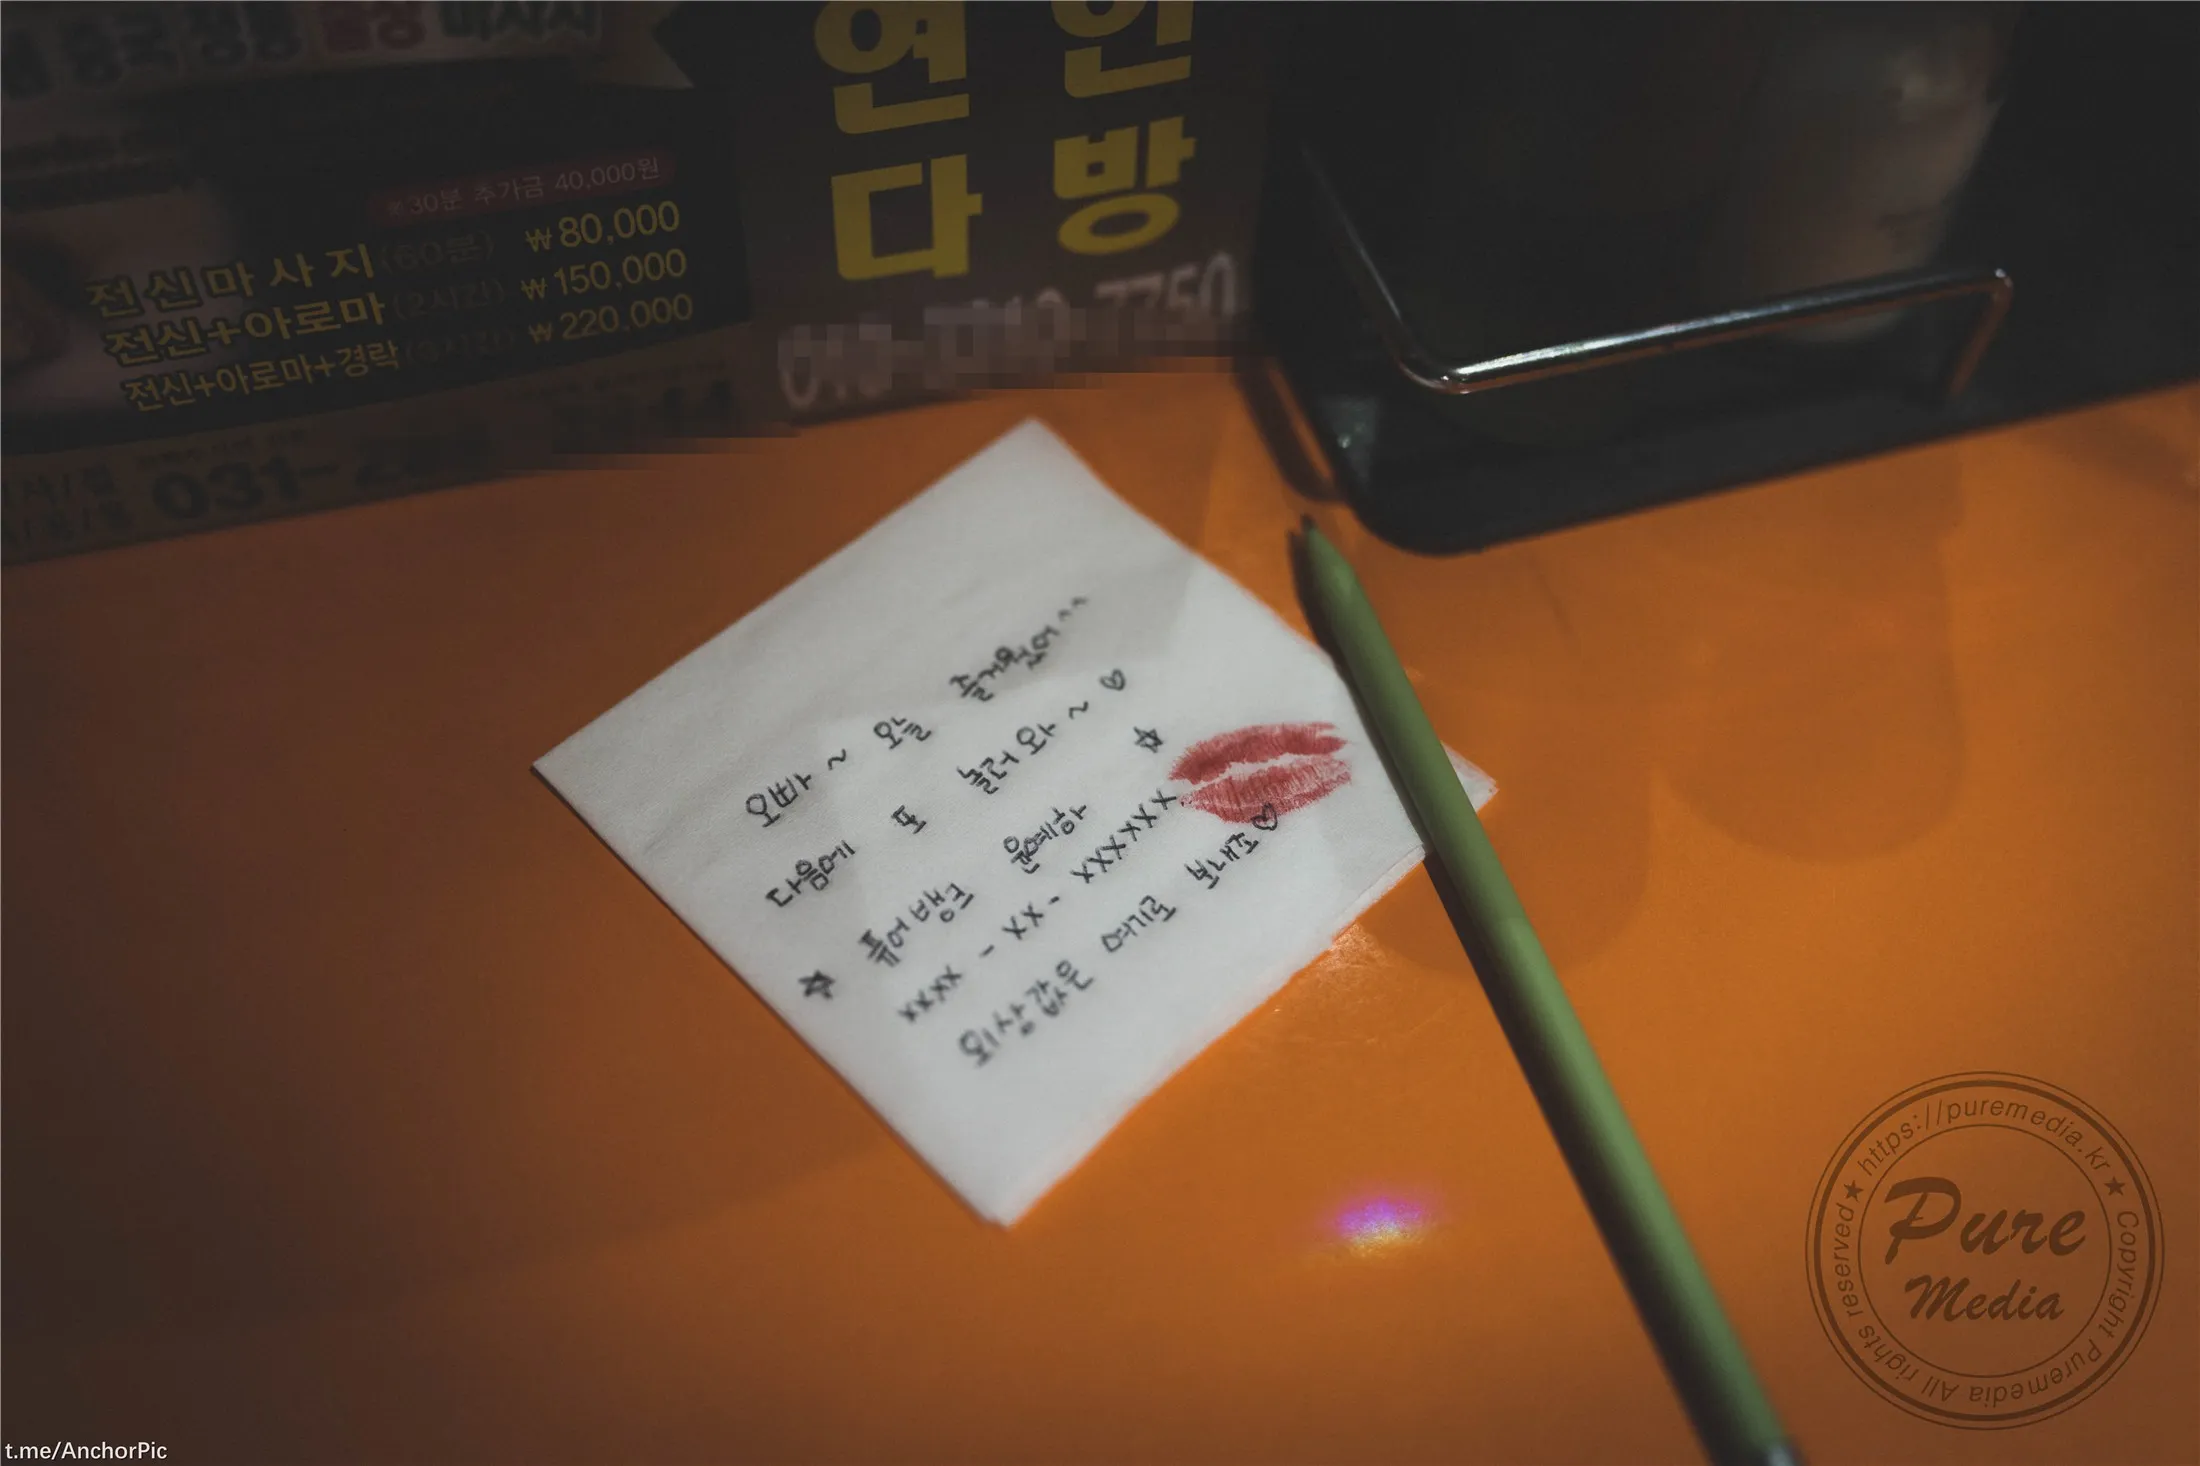 중국 정통 출장 마사지
※30분 추가금 40,000원
전신마사지(60분) ₩80,000
전신+아로마(2시간) ₩150,000
전신+아로마+경락 ₩220,000
031-2
연인
다방
오빠~ 오늘 즐거웠어^^
다음에 또 놀러와~♡
☆ 퓨어뱅크 윤예하 ☆
xxxx-xx-xxxxxx
외상값은 여기로 보내조♡
https://puremedia.kr ★ Copyright Puremedia All rights reserved★
Pure
Media
t.me/AnchorPic